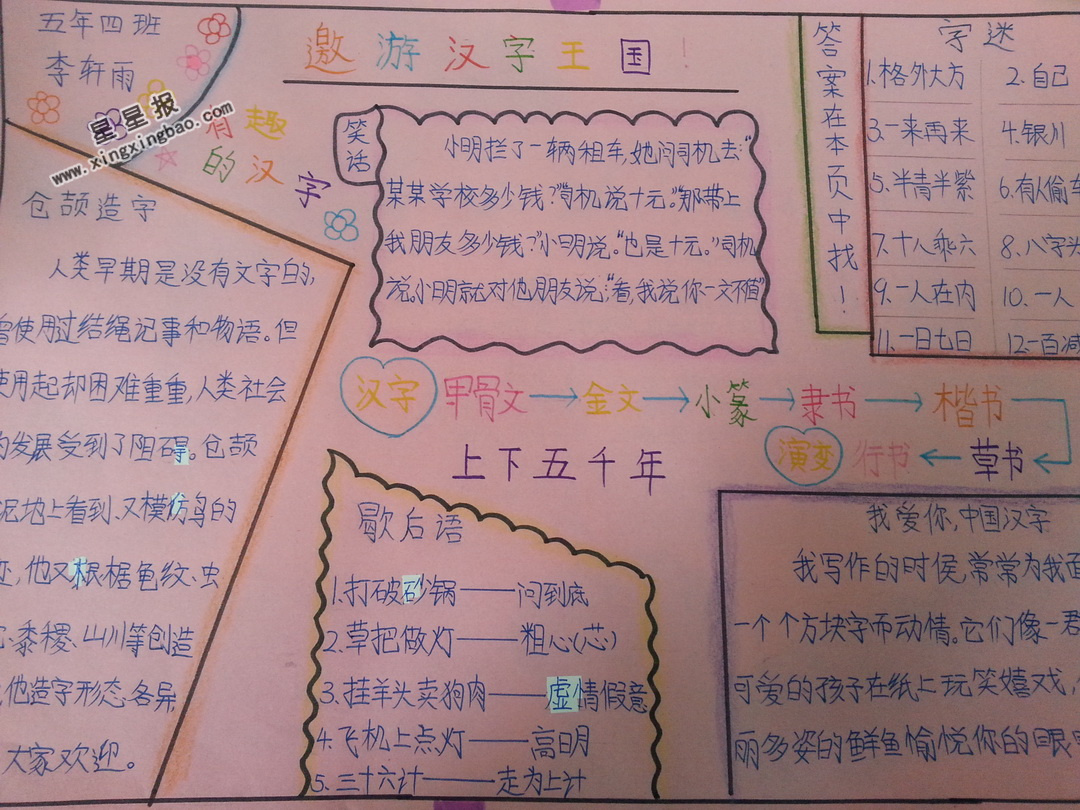 五年四班
李轩雨
星星报
www.xingxingbao.com
邀游汉字王国!
有趣
的汉
字
仓颉造字
人类早期是没有文字的,
曾使用过结绳记事和物语。但
使用起却困难重重,人类社会
的发展受到了阻碍。仓颉
泥地上看到、又模仿鸟的
迹,他又根据龟纹、虫
黍稷、山川等创造
他造字形态各异
大家欢迎。
笑话
小明拦了一辆租车,她问司机去:“
某某学校多少钱?”司机说十元。”那带上
我朋友多少钱?”小明说。“也是十元。”司机
说。小明就对他朋友说:“看,我说你一文不值”
答案在本页中找!
字迷
1.格外大方
2.自己
3.一来再来
4.银川
5.半青半紫
6.有人偷车
7.十人乘六
8.八字头
9.一人在内
10.一人
11.一日七日
12.一百减
汉字 甲骨文→金文→小篆→隶书→楷书
演变 行书←草书
上下五千年
歇后语
1.打破砂锅——问到底
2.草把做灯——粗心(芯)
3.挂羊头卖狗肉——虚情假意
4.飞机上点灯——高明
5.三十六计——走为上计
我爱你,中国汉字
我写作的时候,常常为我面
一个个方块字而动情。它们像一群
可爱的孩子在纸上玩笑嬉戏,
丽多姿的鲜鱼愉悦你的眼